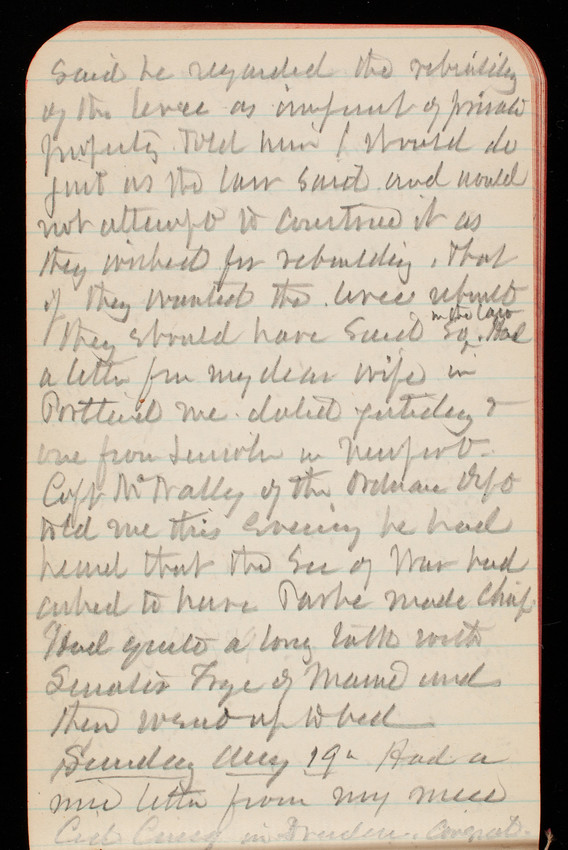 said he regarded the rebuilding
of the levee as impmt of private
property. Told him I should do
just as the law said and would
not attempt to construe it as
they wished for rebuilding, that
if they wanted the levee rebuilt
they should have said so in the law. Had
a letter from my dear wife in
Portland Me. dated yesterday &
one from Lincoln in Newport.
Capt McNally of the Ordnance Dept
told me this evening he had
heard that the Sec of War had
asked to have Parke made Chief.
Had quite a long talk with
Senator Frye of Maine and
then went up to bed
Sunday Aug 19th Had a
nice letter from my niece
in Dresden. Congrat-